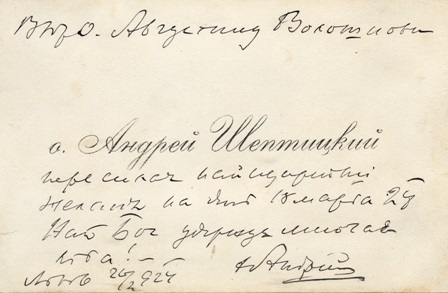 Впр О. Августинд Волошинови
о. Андрей Шептицкий
пересилає найщирійші
желаня на день 18 марта 24
Най Бог удержує многая
лїта! –
Львів 26/2 924 + Андрій